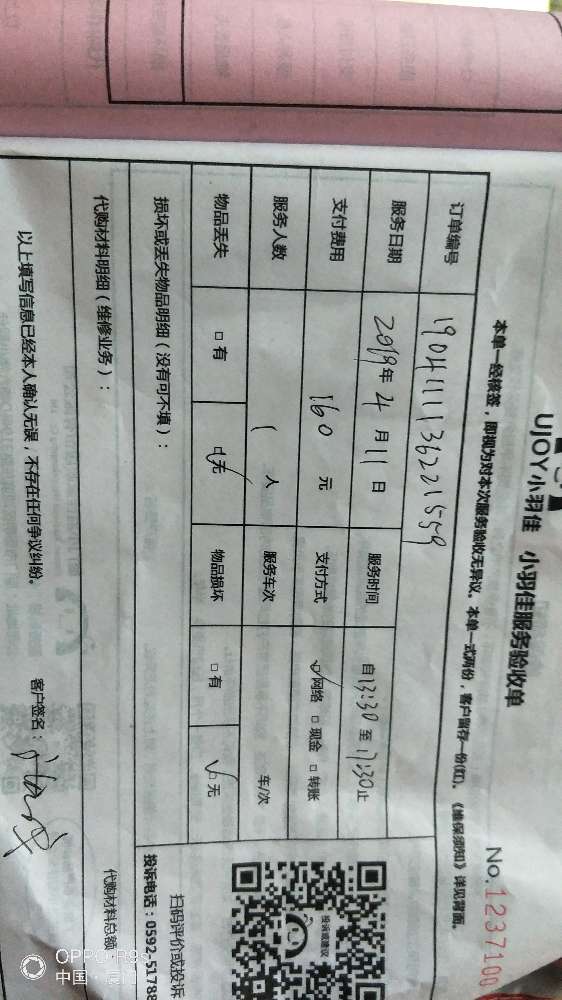 UJOY小羽佳 小羽佳服务验收单
No.1237100
本单一经核签，即视为对本次服务验收无异议。本单一式两份，客户留存一份(红)、《维保须知》详见背面。
订单编号 1904111136221559
服务日期 2019年4月11日 服务时间 自13:30至17:30止
支付费用 160元 支付方式 ☑网络 □现金 □转账
服务人数 1人 服务车次 车/次
物品丢失 □有 ☑无 物品损坏 □有 ☑无
损坏或丢失物品明细（没有可不填）：
代购材料明细（维修业务）：
代购材料总额
以上填写信息已经本人确认无误，不存在任何争议纠纷。 客户签名：
投诉或建议
扫码评价或投诉
投诉电话：0592-51788
OPPO R9s
中国·厦门